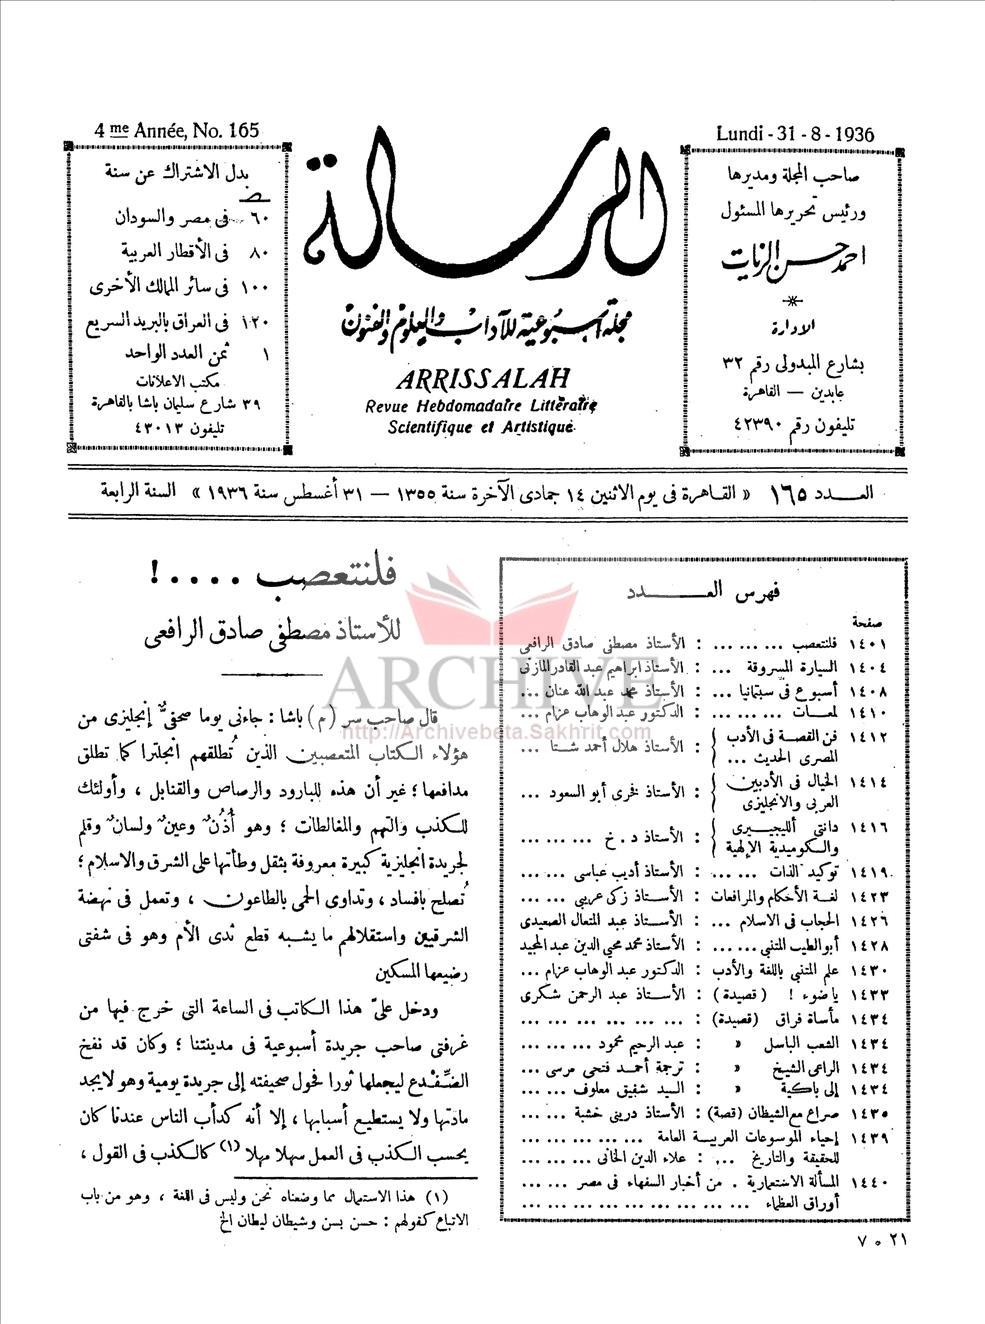 4me Année, No. 165
Lundi - 31 - 8 - 1936
صاحب المجلة ومديرها
ورئيس تحريرها المسئول
احمد حسن الزيات
الادارة
بشارع المبدولى رقم ٣٢
عابدين — القاهرة
تليفون رقم ٤٢٣٩٠
الرسالة
مجلة أسبوعية للآداب والعلوم والفنون
ARRISSALAH
Revue Hebdomadaire Littéraire
Scientifique et Artistique
بدل الاشتراك عن سنة
٦٠ فى مصر والسودان
٨٠ فى الأقطار العربية
١٠٠ فى سائر الممالك الأخرى
١٢٠ فى العراق بالبريد السريع
١ ثمن العدد الواحد
مكتب الاعلانات
٣٩ شارع سليمان باشا بالقاهرة
تليفون ٤٣٠١٣
العـــدد ١٦٥ « القاهرة فى يوم الاثنين ١٤ جمادى الآخرة سنة ١٣٥٥ — ٣١ أغسطس سنة ١٩٣٦ » السنة الرابعة
فهرس العـــــدد
صفحة
١٤٠١ فلنتعصب ... ... ... : الأستاذ مصطفى صادق الرافعى
١٤٠٤ السيارة المسروقة ... : الأستاذ ابراهيم عبد القادر المازنى
١٤٠٨ أسبوع فى سيتمانيا ... : الأستاذ محمد عبد الله عنان ...
١٤١٠ لمعات ... ... ... : الدكتور عبد الوهاب عزام ...
١٤١٢ فن القصة فى الأدب المصرى الحديث ... } : الأستاذ هلال أحمد شتا ...
١٤١٤ الخيال فى الأدبين العربى والانجليزى } : الأستاذ فخرى أبو السعود ...
١٤١٦ دانتى ألليجييرى والكوميدية الإلهية } : الأستاذ د . خ ... ...
١٤١٩ توكيد الذات ... ... : الأستاذ أديب عباسى ... ...
١٤٢٣ لغة الأحكام والمرافعات : الأستاذ زكى عريبى ... ...
١٤٢٦ الحجاب فى الاسلام ... : الأستاذ عبد المتعال الصعيدى
١٤٢٨ أبو الطيب المتنبى ... ... : الأستاذ محمد محيى الدين عبد المجيد
١٤٣٠ علم المتنبى باللغة والأدب : الدكتور عبد الوهاب عزام ...
١٤٣٣ ياضوء ! ( قصيدة ) : الأستاذ عبد الرحمن شكرى
١٤٣٤ مأساة فراق (قصيدة) : ... ... ... ... ... ...
١٤٣٤ الشعب الباسل » : عبد الرحيم محمود ... ...
١٤٣٤ الراعى الشيخ » : ترجمة أحمد فتحى مرسى ...
١٤٣٤ إلى باكية » : السيد شفيق معلوف ... ...
١٤٣٥ صراع مع الشيطان (قصة) : الأستاذ درينى خشبة ... ...
١٤٣٩ إحياء الموسوعات العربية العامة ... ... ... ... ...
للحقيقة والتاريخ ... : علاء الدين الخانى ... ...
١٤٤٠ المسألة الاستعمارية . من أخبار السفهاء فى مصر ... ...
أوراق العظماء ... ... ... ... ... ... ... ...
٢١ ٥ ٧
فلنتعصب .... !
للأستاذ مصطفى صادق الرافعى
قال صاحب سر (م) باشا : جاءنى يوما صحفىٌّ إنجليزى من
هؤلاء الكتاب المتعصبين الذين تُطلقهم انجلترا كما تطلق
مدافعها ؛ غير أن هذه للبارود والرصاص والقنابل ، وأولئك
للكذب والتهم والمغالطات ؛ وهو أُذُنٌ وعينٌ ولسانٌ وقلم
لجريدة انجليزية كبيرة معروفة بثقل وطأتها على الشرق والاسلام ؛
تُصلح بافساد ، وتداوى الحمى بالطاعون ، وتعمل فى نهضة
الشرقيين واستقلالهم ما يشبه قطع ثدى الأم وهو فى شفتى
رضيعها المسكين
ودخل علىّ هذا الكاتب فى الساعة التى خرج فيها من
غرفتى صاحب جريدة أسبوعية فى مدينتنا ؛ وكان قد نفخ
الضِّفدع ليجعلها ثورا فحول صحيفته إلى جريدة يومية وهو لا يجد
مادتها ولا يستطيع أسبابها ، إلا أنه كدأب الناس عندنا كان
يحسب الكذب فى العمل سهلا مهلا (١) كالكذب فى القول ،
(١) هذا الاستعمال مما وضعناه نحن وليس فى اللغة ، وهو من باب
الاتباع كقولهم : حسن بسن وشيطان ليطان الخ
ARCHIVE
http://Archivebeta.Sakhrit.com